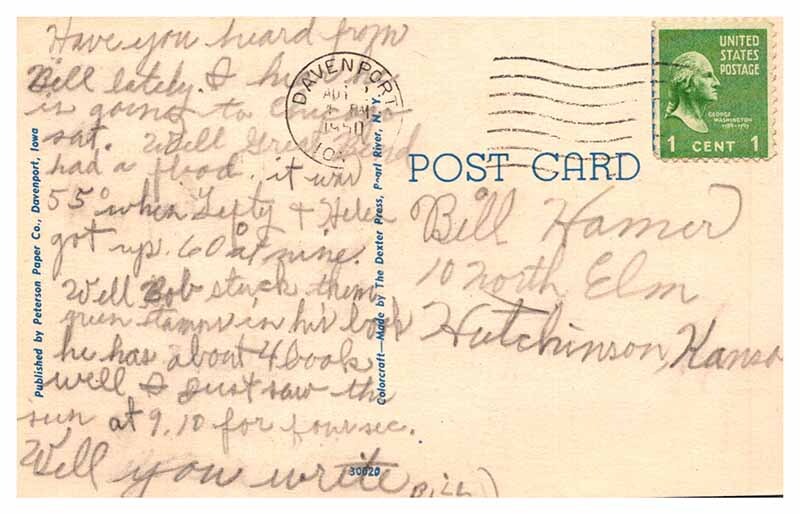 Have you heard from
Bill lately. I
is going to Chicago
sat. Well Great Bend
had a flood. it was
55° when Lefty & Helen
got up. 60° at nine.
Well Bob stuck them
green stamps in his book
he has about 4 book
well I just saw the
sun at 9,10 for four sec.
Will you write
BILL)
DAVENPORT
1950
IOWA
UNITED
STATES
POSTAGE
GEORGE
WASHINGTON
1 CENT 1
POST CARD
Bill Hamer
10 North Elm
Hutchinson, Kansa
Published by Peterson Paper Co., Davenport, Iowa
Colorcraft—Made by The Dexter Press, Pearl River, N.Y.
30020